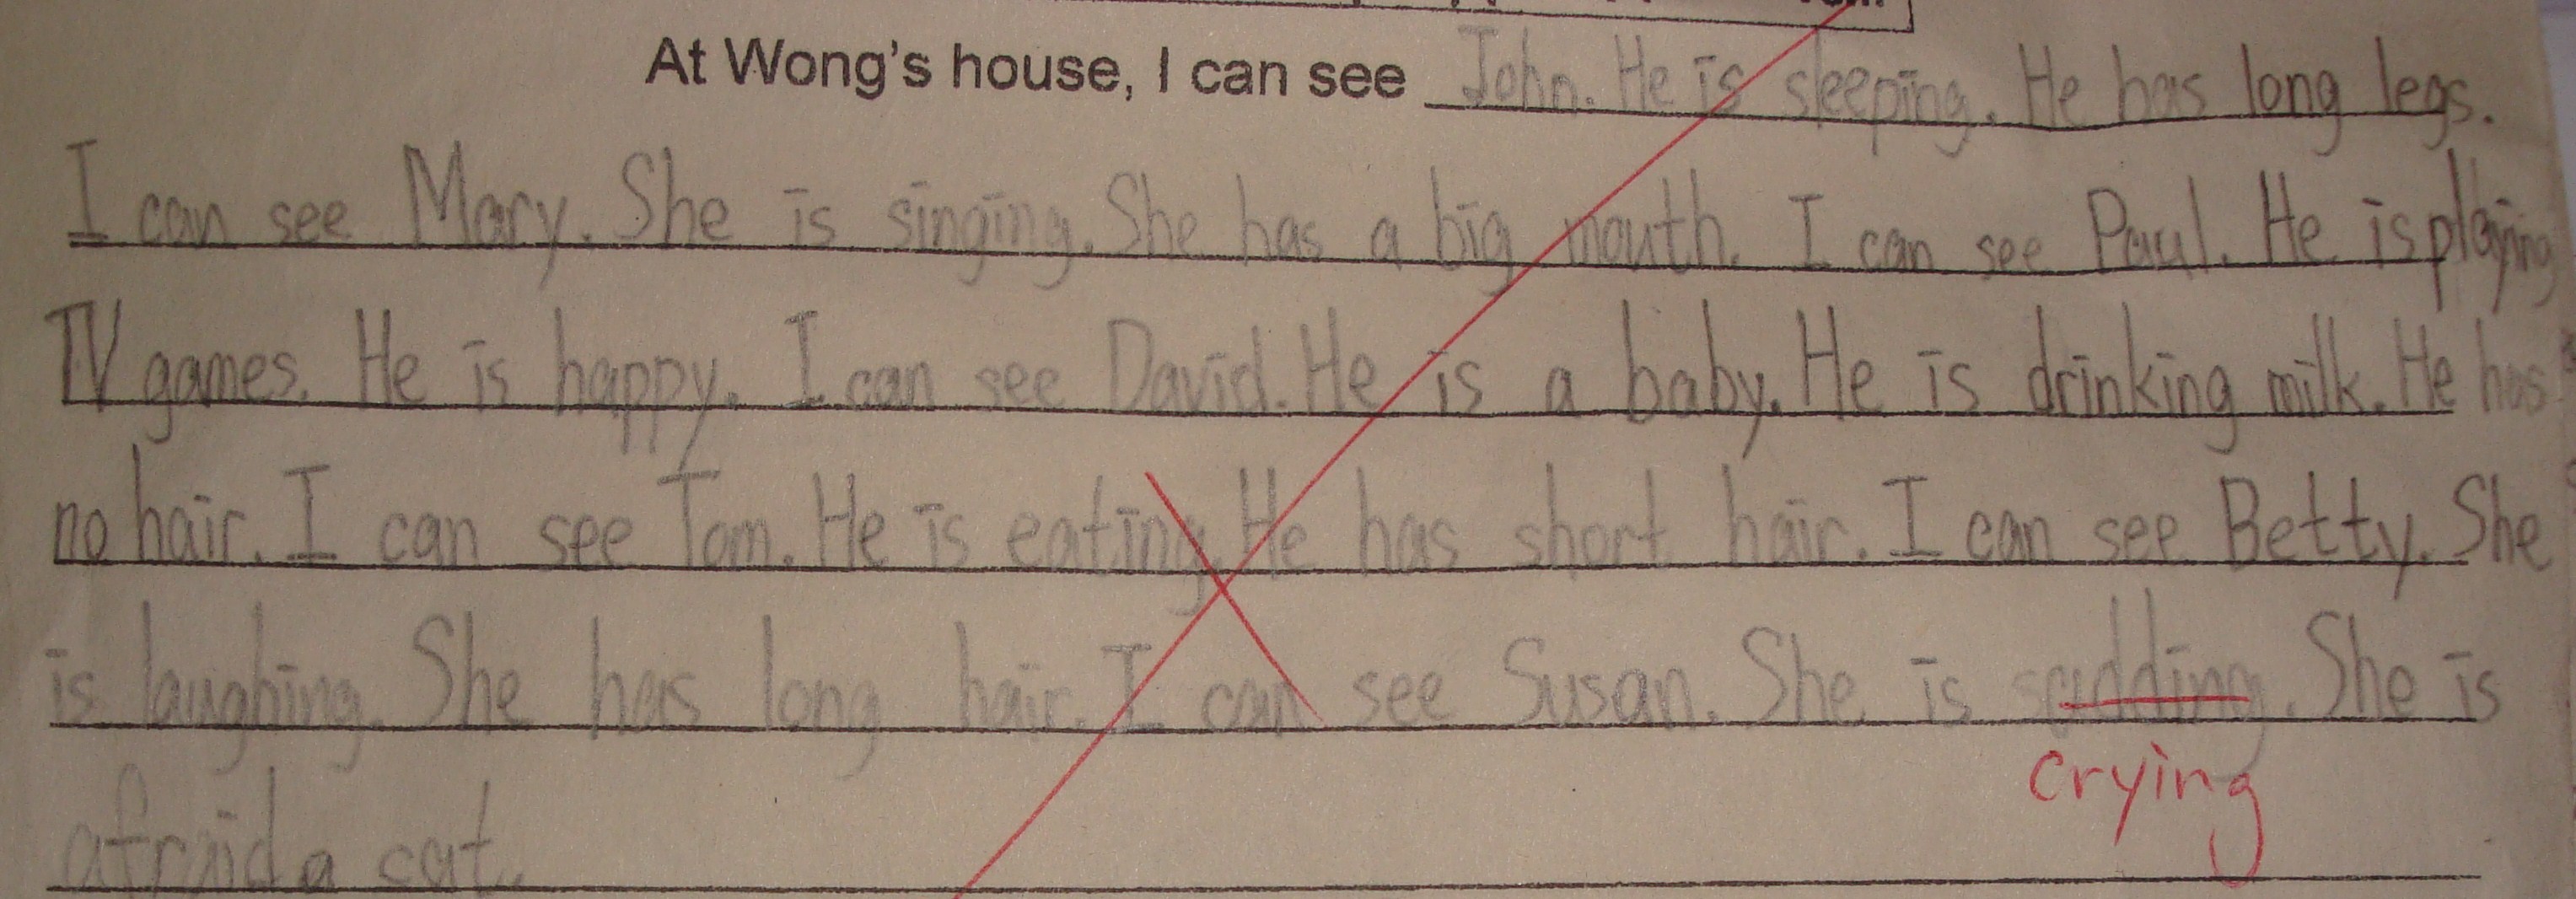 At Wong's house, I can see John. He is sleeping. He has long legs.
I can see Mary. She is singing. She has a big mouth. I can see Paul. He is playing
TV games. He is happy. I can see David. He is a baby. He is drinking milk. He has
no hair. I can see Tom. He is eating. He has short hair. I can see Betty. She
is laughing. She has long hair. I can see Susan. She is sadding. She is
crying
afraid a cat.